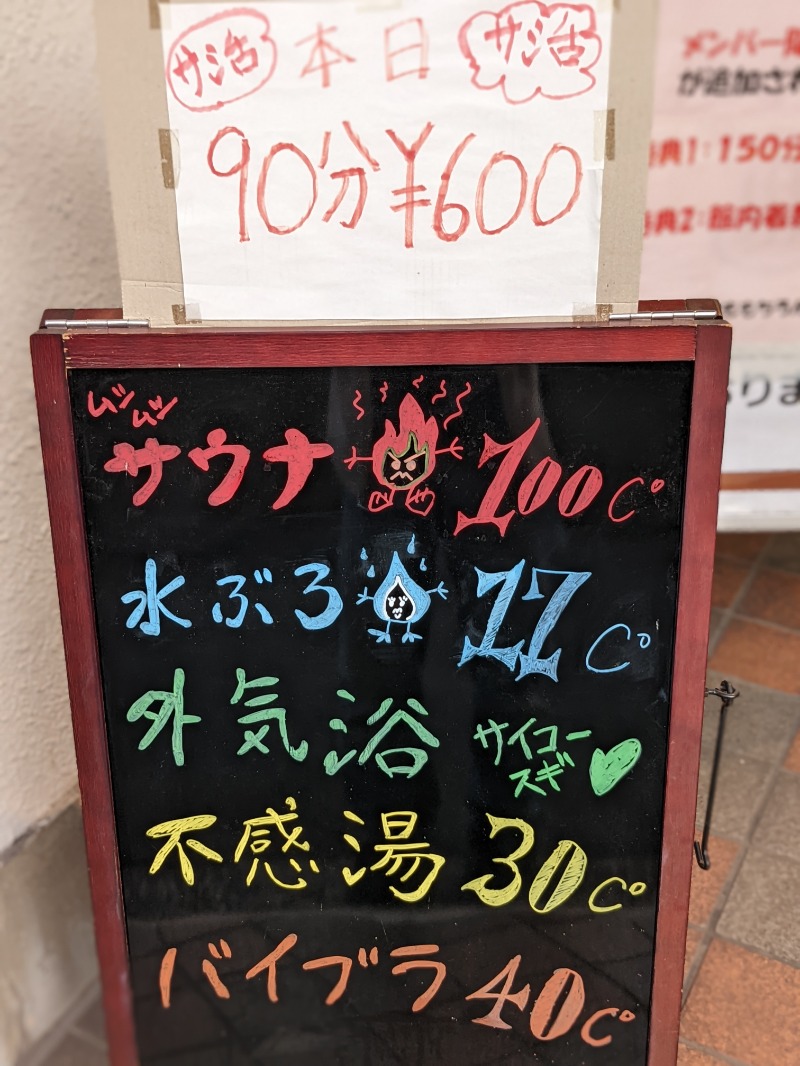 サ活 本日 サ活
90分¥600
ムシムシ
サウナ 100C°
水ぶろ 17C°
外気浴 サイコー
スギ
不感湯 30C°
バイブラ 40C°
メンバー
が追加され
典1:150分
典2:館内着
りま